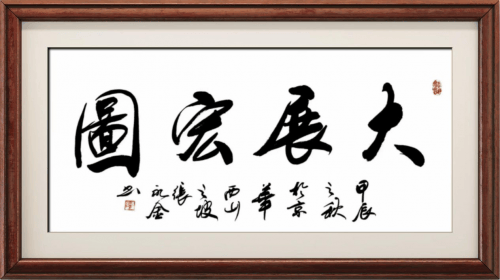 大展宏圖
甲辰之秋於京華西山之坡張永金书